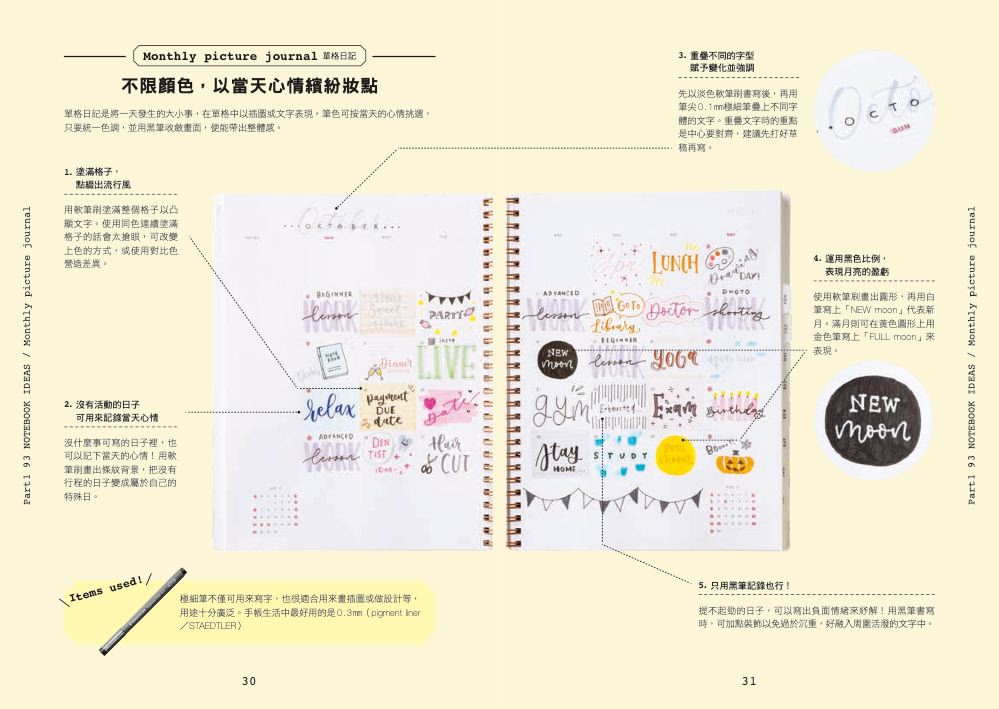 Monthly picture journal 單格日記
不限顏色，以當天心情繽紛妝點
單格日記是將一天發生的大小事，在單格中以插圖或文字表現。筆色可按當天的心情挑選，
只要統一色調，並用黑筆收斂畫面，便能帶出整體感。
1. 塗滿格子，
點綴出流行風
用軟筆刷塗滿整個格子以凸
顯文字。使用同色連續塗滿
格子的話會太搶眼，可改變
上色的方式，或使用對比色
營造差異。
2. 沒有活動的日子
可用來記錄當天心情
沒什麼事可寫的日子裡，也
可以記下當天的心情！用軟
筆刷畫出條紋背景，把沒有
行程的日子變成屬於自己的
特殊日。
3. 重疊不同的字型
賦予變化並強調
先以淡色軟筆刷書寫後，再用
筆尖0.1mm極細筆疊上不同字
體的文字。重疊文字時的重點
是中心要對齊，建議先打好草
稿再寫。
Octo
OCTO
SUN
4. 運用黑色比例，
表現月亮的盈虧
使用軟筆刷畫出圓形，再用白
筆寫上「NEW moon」代表新
月。滿月則可在黃色圓形上用
金色筆寫上「FULL moon」來
表現。
NEW
moon
5. 只用黑筆記錄也行！
提不起勁的日子，可以寫出負面情緒來紓解！用黑筆書寫
時，可加點裝飾以免過於沉重，好融入周圍活潑的文字中。
October
OCTOBER
BEGINNER
WORK
lesson
PARTY
NOTE
BOOK
Dinner
insta
LIVE
relax
payment
DUE
date
Date
ADVANCED
WORK
lesson
DENTIST
Hair
CUT
LUNCH
Drawing
DAY!
ADVANCED
WORK
lesson
GO TO
Library
Doctor
PHOTO
WORK
shooting
NEW
moon
BEGINNER
WORK
lesson
YOGA
gym
Exhausted...
Exam
Birthday
Stay
HOME...
STUDY
FULL
moon
Boo
Items used!
極細筆不僅可用來寫字，也很適合用來畫插圖或做設計等，
用途十分廣泛。手帳生活中最好用的是0.3mm（pigment liner
／STAEDTLER）
Part1 93 NOTEBOOK IDEAS / Monthly picture journal
Part1 93 NOTEBOOK IDEAS / Monthly picture journal
30
31